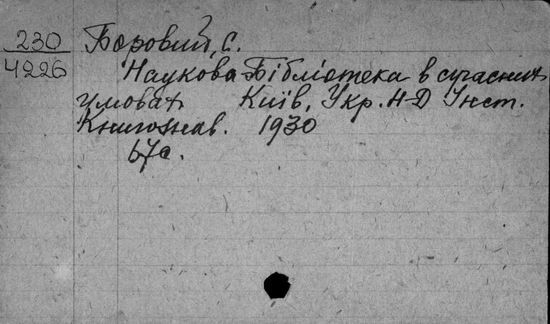 230
4226
Боровий, С.
Наукова Бібліотека в сучасних
умовах Київ, Укр. Н-Д Інст.
Книгознав. 1930
67с.